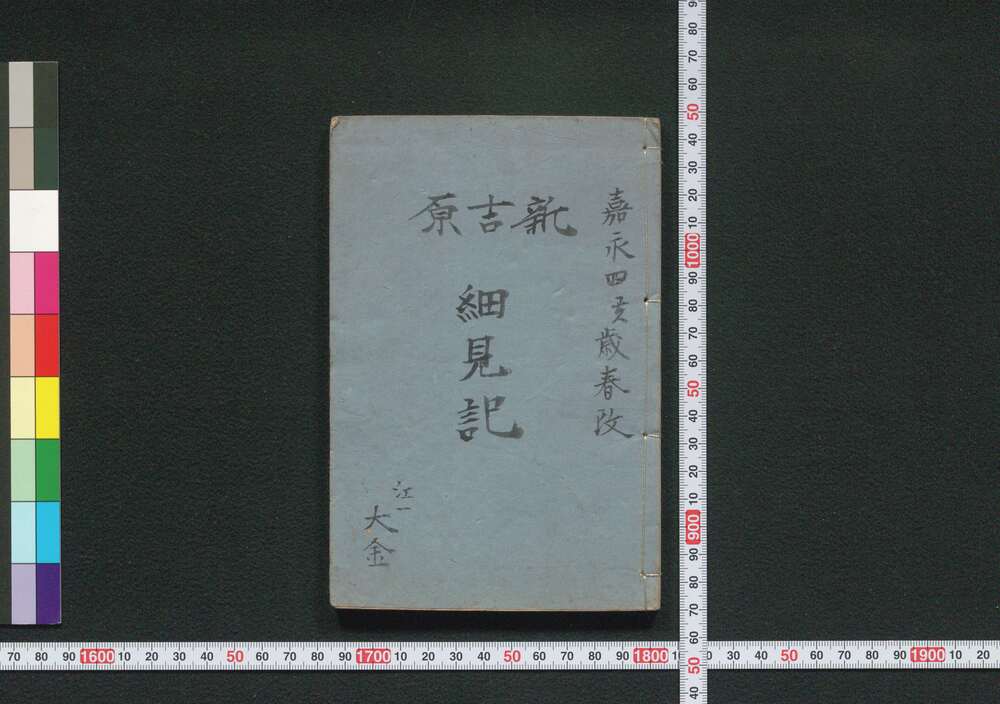 嘉永四亥歳春改
新吉原
細見記
江一
大金
90
80 70 60 50 40 30 20 10 1000 90 80 70 60 50 40 30 20 10 900 90 80 70 60 50 40
70 80 90 1600 10 20 30 40 50 60 70 80 90 1700 10 20 30 40 50 60 70 80 90 1800 10 30 40 50 60 70 80 90 1900 10 20